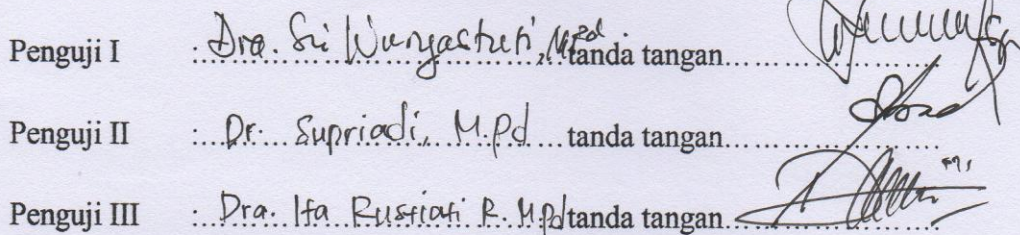 Penguji I : Dra. Sri Wuryastuti, M.Pd. tanda tangan
Penguji II : Dr. Supriadi, M.Pd tanda tangan
Penguji III : Dra. Ifa Rustiati R. M.Pd tanda tangan